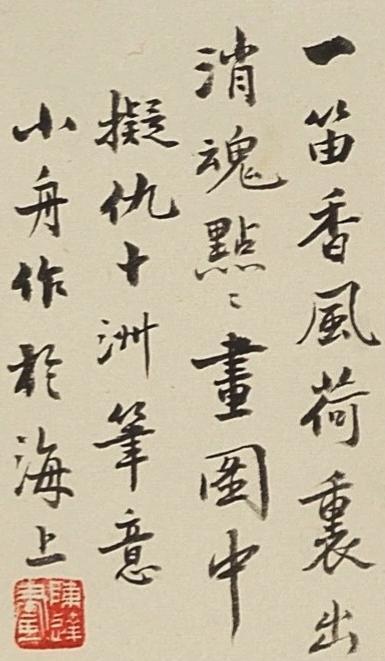 一笛香風荷裏出
消魂點〻畫圖中
擬仇十洲筆意
小舟作於海上